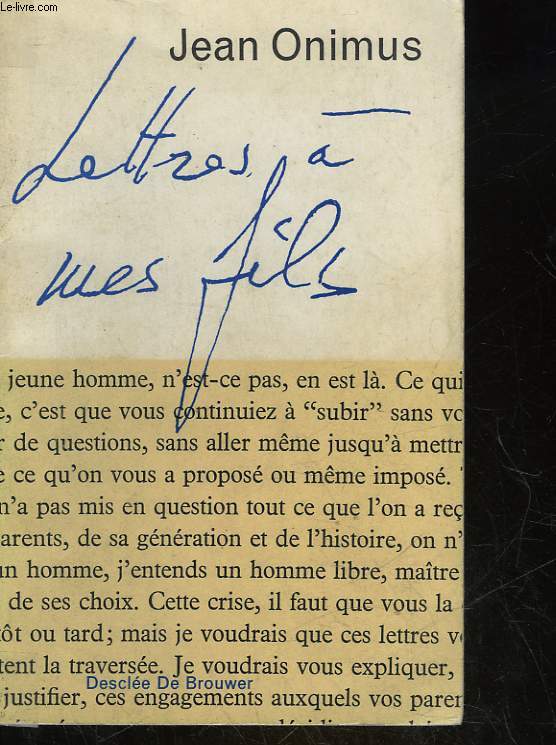 Le-livre.com
Jean Onimus
Lettres à
mes fils
jeune homme, n'est-ce pas, en est là. Ce qui
e, c'est que vous continuiez à “subir” sans vo
r de questions, sans aller même jusqu'à mettr
e ce qu'on vous a proposé ou même imposé.
n'a pas mis en question tout ce que l'on a reç
arents, de sa génération et de l'histoire, on n'
un homme, j'entends un homme libre, maître
de ses choix. Cette crise, il faut que vous la
tôt ou tard; mais je voudrais que ces lettres v
tent la traversée. Je voudrais vous expliquer,
Desclée De Brouwer
justifier, ces engagements auxquels vos paren